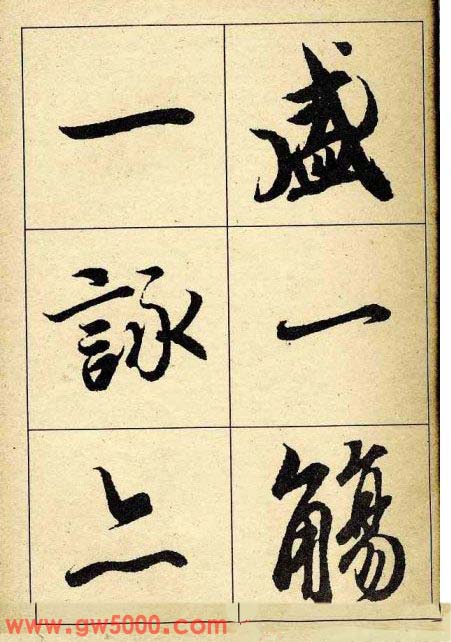 盛一觴
一詠亦
www.gw5000.com